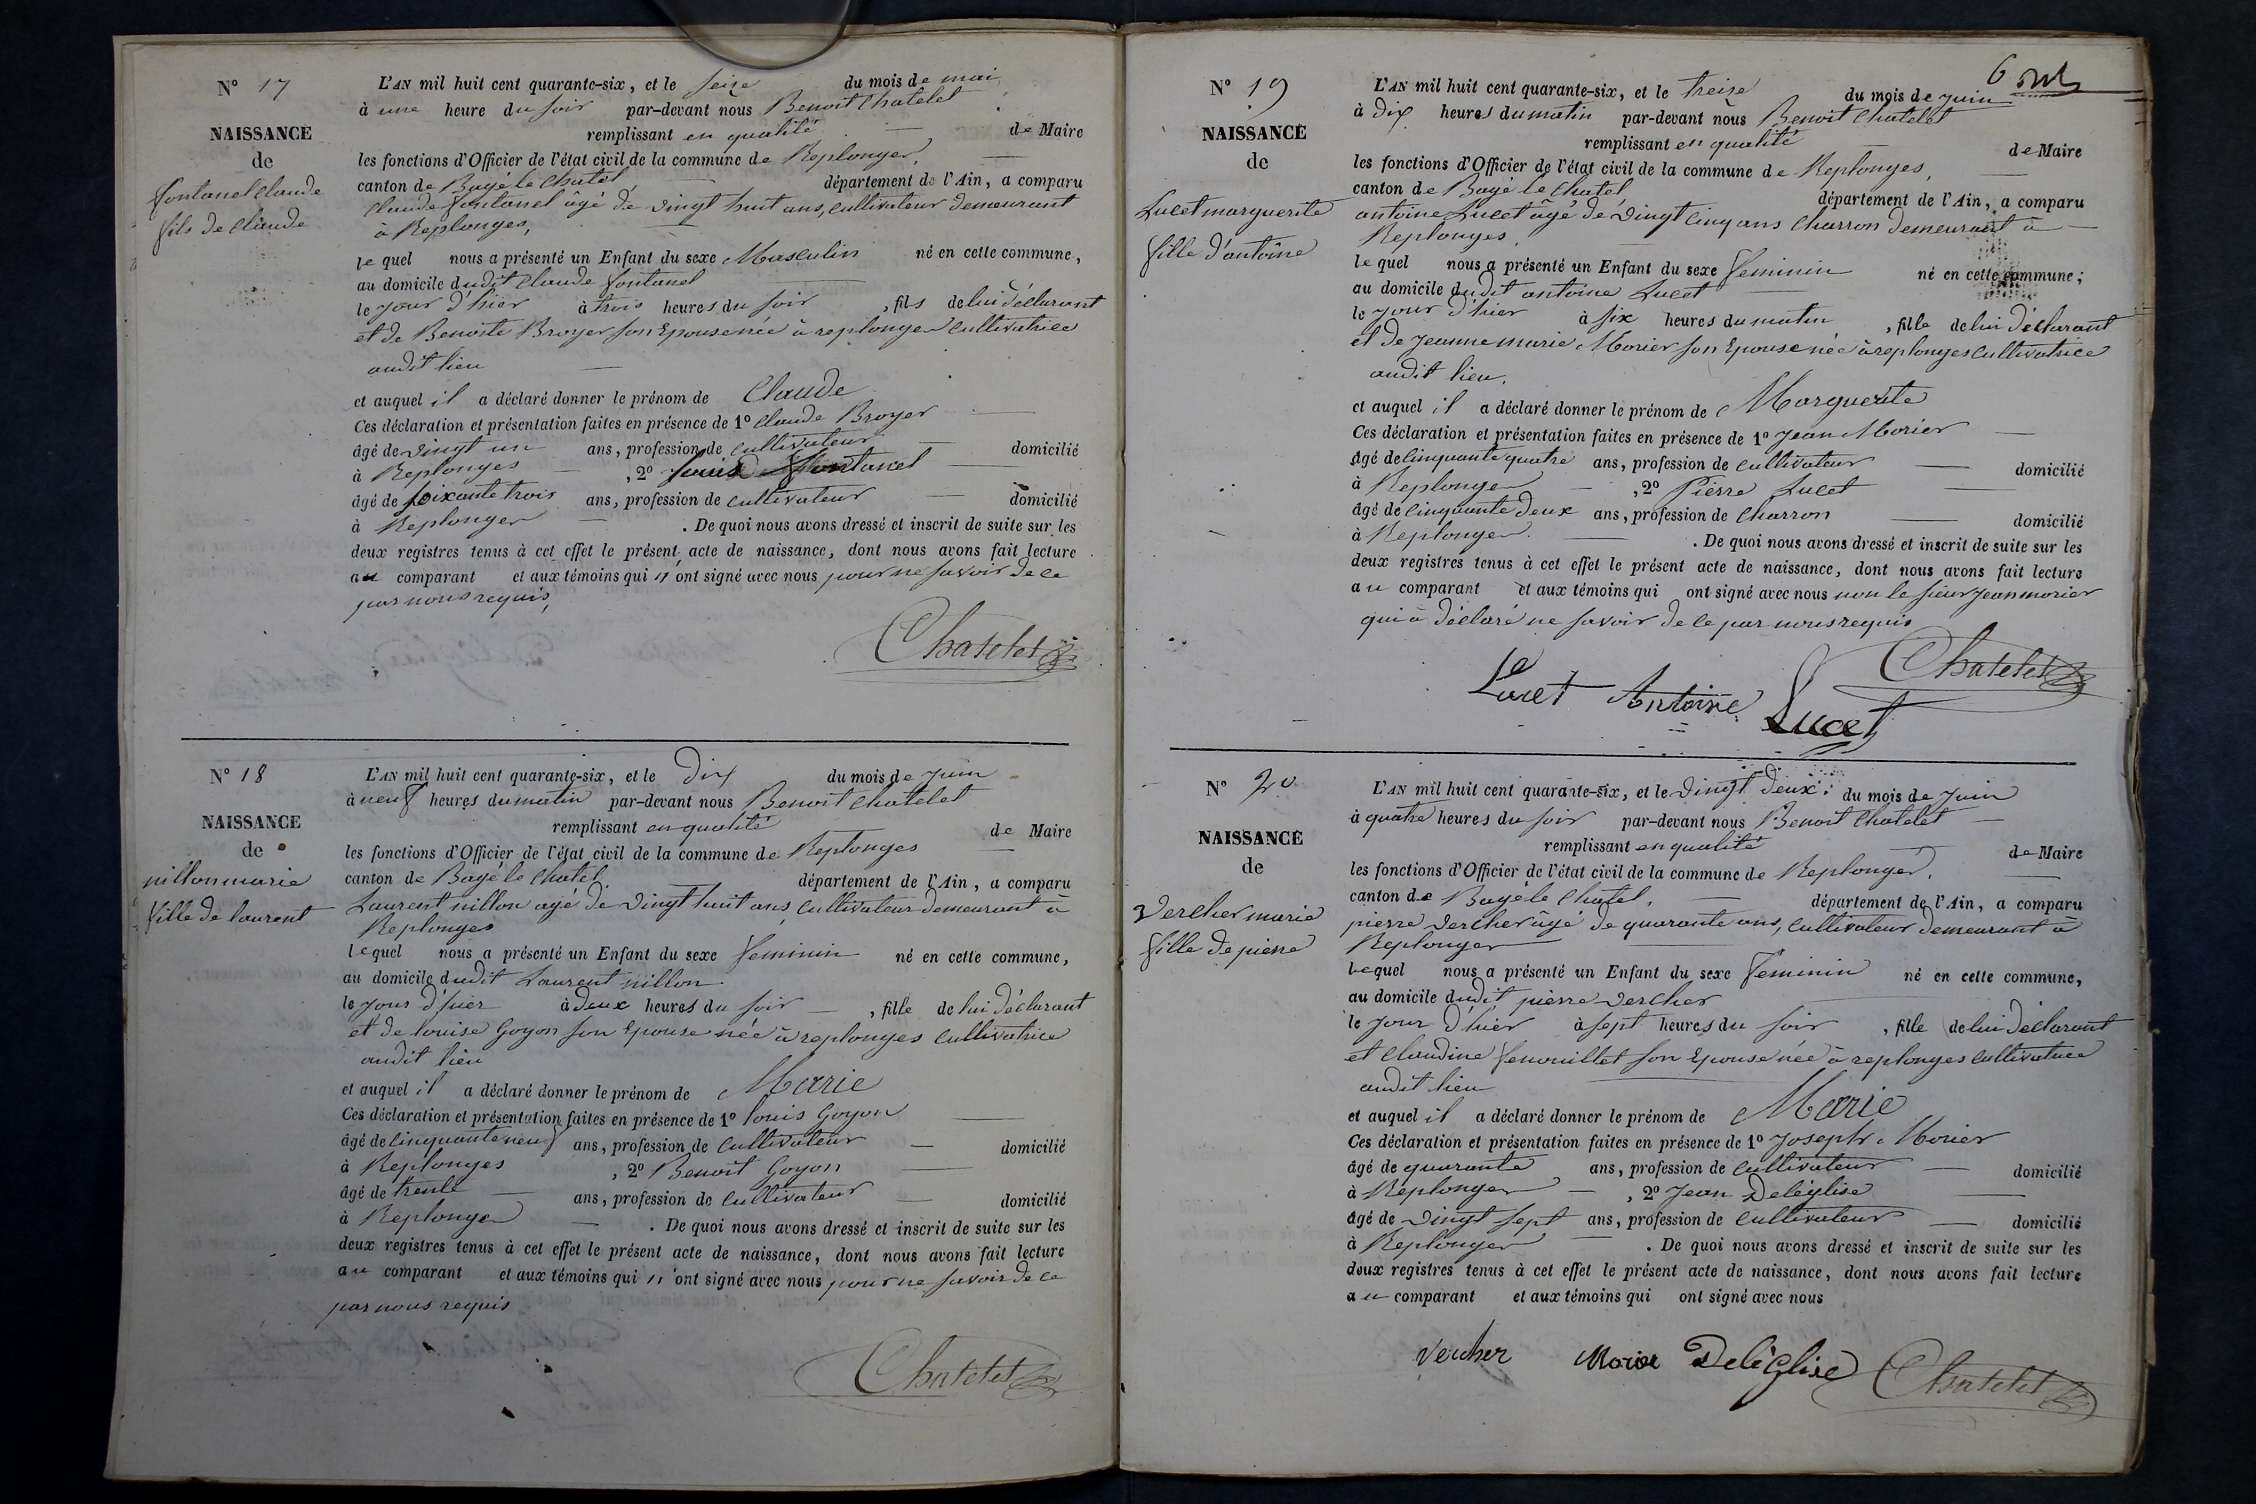 N° 17
NAISSANCE
de
fontanel Claude
fils de Claude
L'AN mil huit cent quarante-six, et le seize du mois de mai
à une heure du soir par-devant nous Benoit Chatelet
remplissant en qualité de Maire
les fonctions d'Officier de l'état civil de la commune de Replonges,
canton de Bagé le Chatel, département de l'Ain, a comparu
Claude fontanel âgé de vingt huit ans, cultivateur demeurant
à Replonges,
lequel nous a présenté un Enfant du sexe Masculin né en cette commune,
au domicile dudit Claude fontanel
le jour d'hier à trois heures du soir, fils de lui déclarant
et de Benoite Broyer son Epouse née à replonges Cultivatrice
audit lieu
et auquel il a déclaré donner le prénom de Claude
Ces déclaration et présentation faites en présence de 1° Claude Broyer
âgé de vingt un ans, profession de cultivateur domicilié
à Replonges, 2° Louis fontanel
âgé de soixante trois ans, profession de cultivateur domicilié
à Replonges. De quoi nous avons dressé et inscrit de suite sur les
deux registres tenus à cet effet le présent acte de naissance, dont nous avons fait lecture
au comparant et aux témoins qui n'ont signé avec nous pour ne savoir de ce
par nous requis,
Chatelet
N° 18
NAISSANCE
de
nillon marie
fille de laurent
L'AN mil huit cent quarante-six, et le dix du mois de juin
à neuf heures du matin par-devant nous Benoit Chatelet
remplissant en qualité de Maire
les fonctions d'Officier de l'état civil de la commune de Replonges
canton de Bagé le Chatel, département de l'Ain, a comparu
Laurent nillon agé de vingt huit ans Cultivateur demeurant à
Replonges
lequel nous a présenté un Enfant du sexe feminin né en cette commune,
au domicile dudit Laurent nillon
le jour d'hier à deux heures du soir, fille de lui déclarant
et de louise Goyon son Epouse née à replonges Cultivatrice
audit lieu
et auquel il a déclaré donner le prénom de Marie
Ces déclaration et présentation faites en présence de 1° louis Goyon
âgé de cinquante neuf ans, profession de cultivateur domicilié
à Replonges, 2° Benoit Goyon
âgé de trente ans, profession de cultivateur domicilié
à Replonges. De quoi nous avons dressé et inscrit de suite sur les
deux registres tenus à cet effet le présent acte de naissance, dont nous avons fait lecture
au comparant et aux témoins qui n'ont signé avec nous pour ne savoir de ce
par nous requis
Chatelet
6
N° 19
NAISSANCE
de
Lucet marguerite
fille d'antoine
L'AN mil huit cent quarante-six, et le treize du mois de juin
à dix heures du matin par-devant nous Benoit Chatelet
remplissant en qualité de Maire
les fonctions d'Officier de l'état civil de la commune de Replonges,
canton de Bagé le Chatel département de l'Ain, a comparu
antoine Lucet âgé de vingt cinq ans charron demeurant à
Replonges,
lequel nous a présenté un Enfant du sexe feminin né en cette commune;
au domicile dudit antoine Lucet
le jour d'hier à six heures du matin, fille de lui déclarant
et de jeanne marie Morier son Epouse née à replonges Cultivatrice
audit lieu.
et auquel il a déclaré donner le prénom de Marguerite
Ces déclaration et présentation faites en présence de 1° jean Morier
âgé de cinquante quatre ans, profession de cultivateur domicilié
à Replonges, 2° Pierre Lucet
âgé de cinquante deux ans, profession de charron domicilié
à Replonges. De quoi nous avons dressé et inscrit de suite sur les
deux registres tenus à cet effet le présent acte de naissance, dont nous avons fait lecture
au comparant et aux témoins qui ont signé avec nous non le sieur jean morier
qui a déclaré ne savoir de ce par nous requis
Chatelet
Lucet Antoine Lucet
N° 20
NAISSANCE
de
Vercher marie
fille de pierre
L'AN mil huit cent quarante-six, et le vingt deux du mois de juin
à quatre heures du soir par-devant nous Benoit Chatelet
remplissant en qualité de Maire
les fonctions d'Officier de l'état civil de la commune de Replonges,
canton de Bagé le Chatel, département de l'Ain, a comparu
pierre Vercher âgé de quarante ans, Cultivateur demeurant à
Replonges
lequel nous a présenté un Enfant du sexe feminin né en cette commune,
au domicile dudit pierre Vercher
le jour d'hier à sept heures du soir, fille de lui déclarant
et Claudine fenouillet son Epouse née à replonges Cultivatrice
audit lieu
et auquel il a déclaré donner le prénom de Marie
Ces déclaration et présentation faites en présence de 1° joseph Morier
âgé de quarante ans, profession de cultivateur domicilié
à Replonges, 2° Jean Deléglise
âgé de vingt sept ans, profession de Cultivateur domicilié
à Replonges. De quoi nous avons dressé et inscrit de suite sur les
deux registres tenus à cet effet le présent acte de naissance, dont nous avons fait lecture
au comparant et aux témoins qui ont signé avec nous
Vercher Morier Deléglise Chatelet